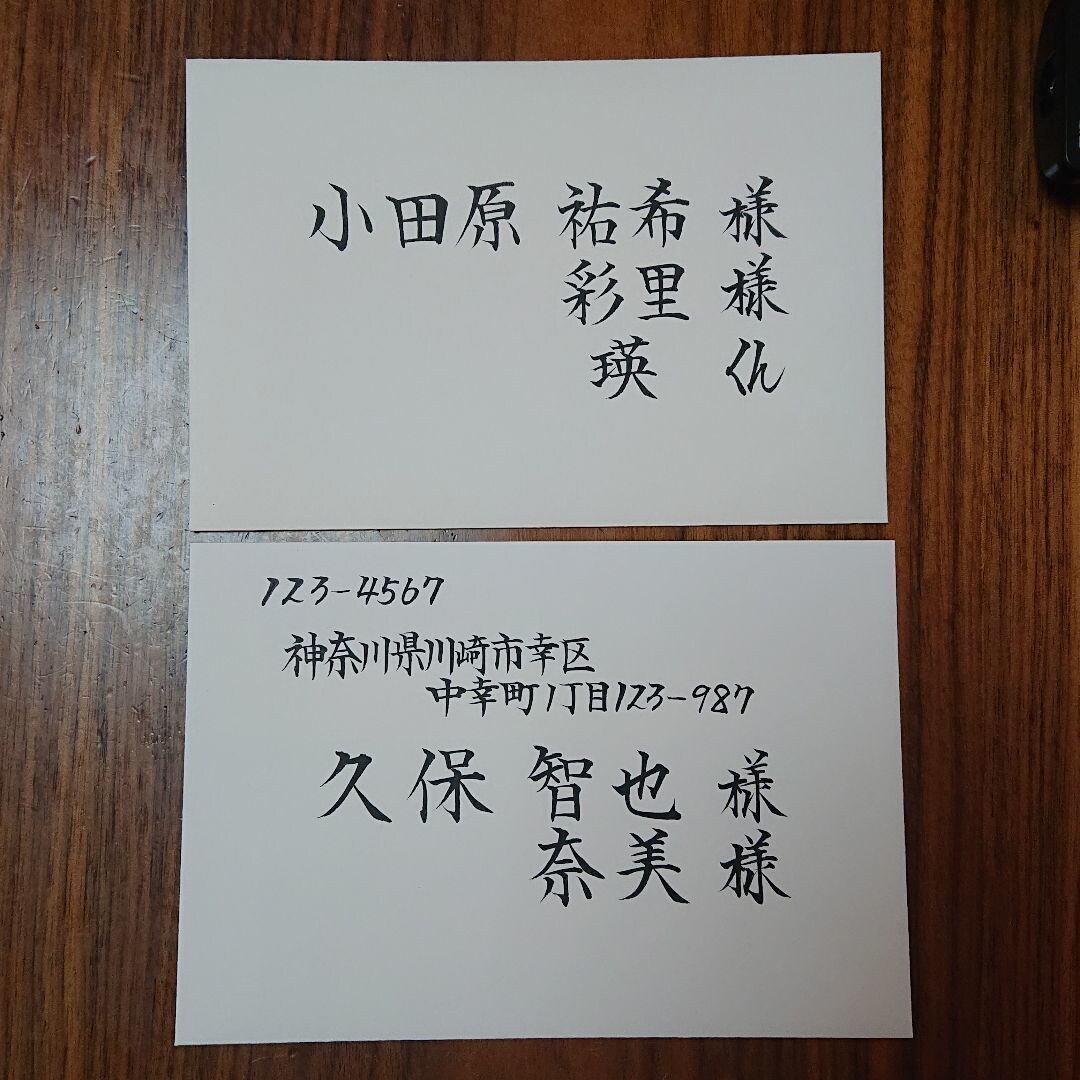 小田原 祐希 様
彩里 様
瑛 くん
123-4567
神奈川県川崎市幸区
中幸町1丁目123-987
久保 智也 様
奈美 様